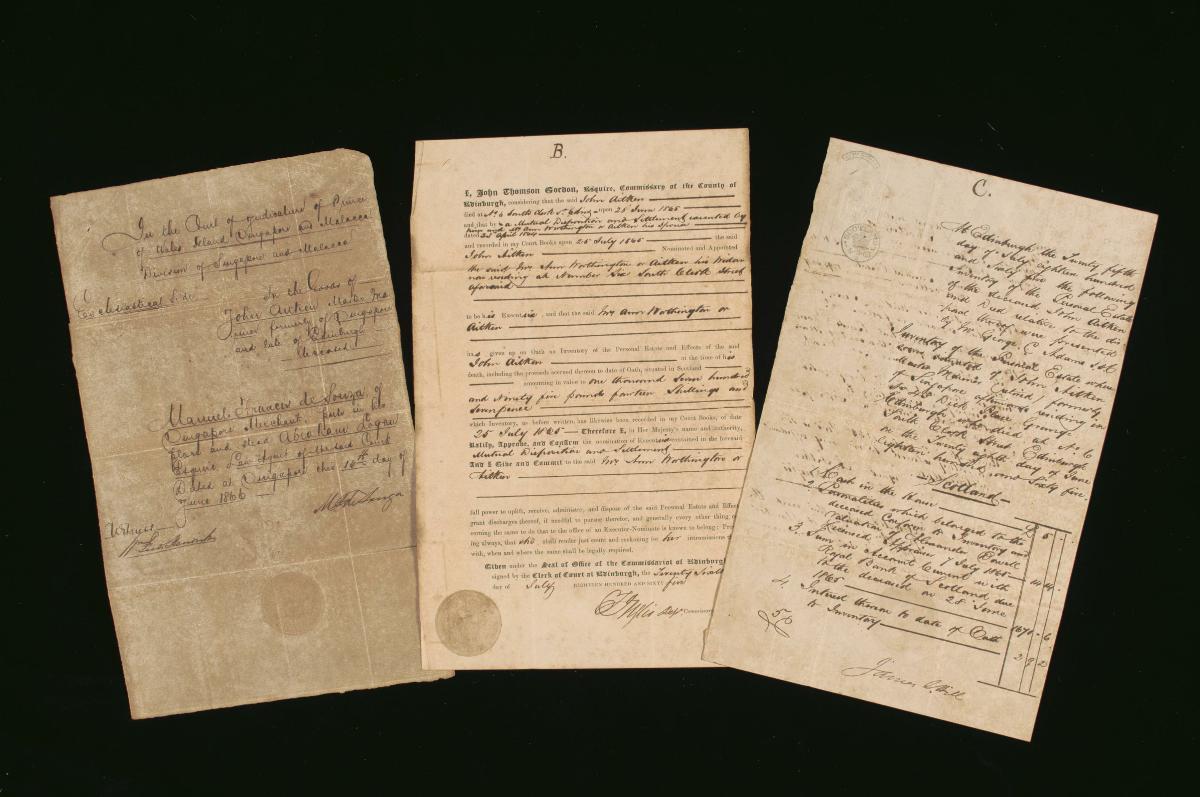 In the Court of Judicature of Prince
of Wales Island Singapore and Malacca
Division of Singapore and Malacca
Ecclesiastical Side
In the Goods of
John Aitken Master Ma
riner formerly of Singapore
and late of Edinburgh
Deceased
Manuel Francis de Souza of
Singapore Merchant, puts in his
Place and stead Abraham Logan
Esquire Law Agent of the said Court
Dated at Singapore this 16th day of
June 1866
Witness
B.
I, John Thomson Gordon, Esquire, Commissary of the County of
Edinburgh, considering that the said John Aitken
died at No. 6 South Clerk St. Edinr. upon 28 June 1865
and that by a Mutual Disposition and Settlement executed by
him and Mrs Ann Worthington or Aitken his Spouse
dated 25 April 1864
and recorded in my Court Books upon 25 July 1865 the said
John Aitken Nominated and Appointed
the said Mrs Ann Worthington or Aitken his Widow
now residing at Number Six South Clerk Street
aforesaid
to be his Executrix, and that the said Mrs Ann Worthington or
Aitken
has given up on Oath an Inventory of the Personal Estate and Effects of the said
John Aitken at the time of his
death, including the proceeds accrued thereon to date of Oath, situated in Scotland
amounting in value to One thousand Seven hundred
and Ninety five pounds fourteen Shillings and
Sevenpence
which Inventory, as before written, has likewise been recorded in my Court Books, of date
25 July 1865 Therefore I, in Her Majesty's name and Authority,
Ratify, Approve, and Confirm the nomination of Executrix contained in the foresaid
Mutual Disposition and Settlement
And I Give and Commit to the said Mrs Ann Worthington or
Aitken
full power to uplift, receive, administer, and dispose of the said Personal Estate and Effec
grant discharges thereof, if needful to pursue therefor, and generally every other thing
erning the same to do that to the office of an Executor-Nominate is known to belong; Pro
ing always, that she shall render just count and reckoning for her intromissions
with, when and where the same shall be legally required.
Given under the Seal of Office of the Commissariot of Edinburgh
signed by the Clerk of Court at Edinburgh, the Twenty Sixth
day of July EIGHTEEN HUNDRED AND SIXTY five
Commissary
C.
At Edinburgh the Twenty fifth
day of July eighteen hundred
and Sixty five the following
Inventory of the Personal Estate
of the deceased John Aitken
and Oath relative to the dis
posal thereof were presented
by Mr George C. Adams Sol
Inventory of the Personal Estate where
soever situated of John Aitken
Master Mariner, formerly
of Singapore afterwards residing in
No 46 Dick Place Grange
Edinburgh who died at No. 6
South Clerk Street Edinburgh
on the Twenty eighth day of June
Eighteen hundred and Sixty five
Scotland
1. Cash in the House £ 5
2. Personalities which belonged to the
deceased Conform to Inventory and
Valuation of Alexander Dowell
Licensed Appraiser 7 July 1865
3. Sum in Account Current with
Royal Bank of Scotland due
to the deceased on 28 June
1865 1670 6
4. Interest thereon to date of Oath
to Inventory 2 9 2
James C. Hill